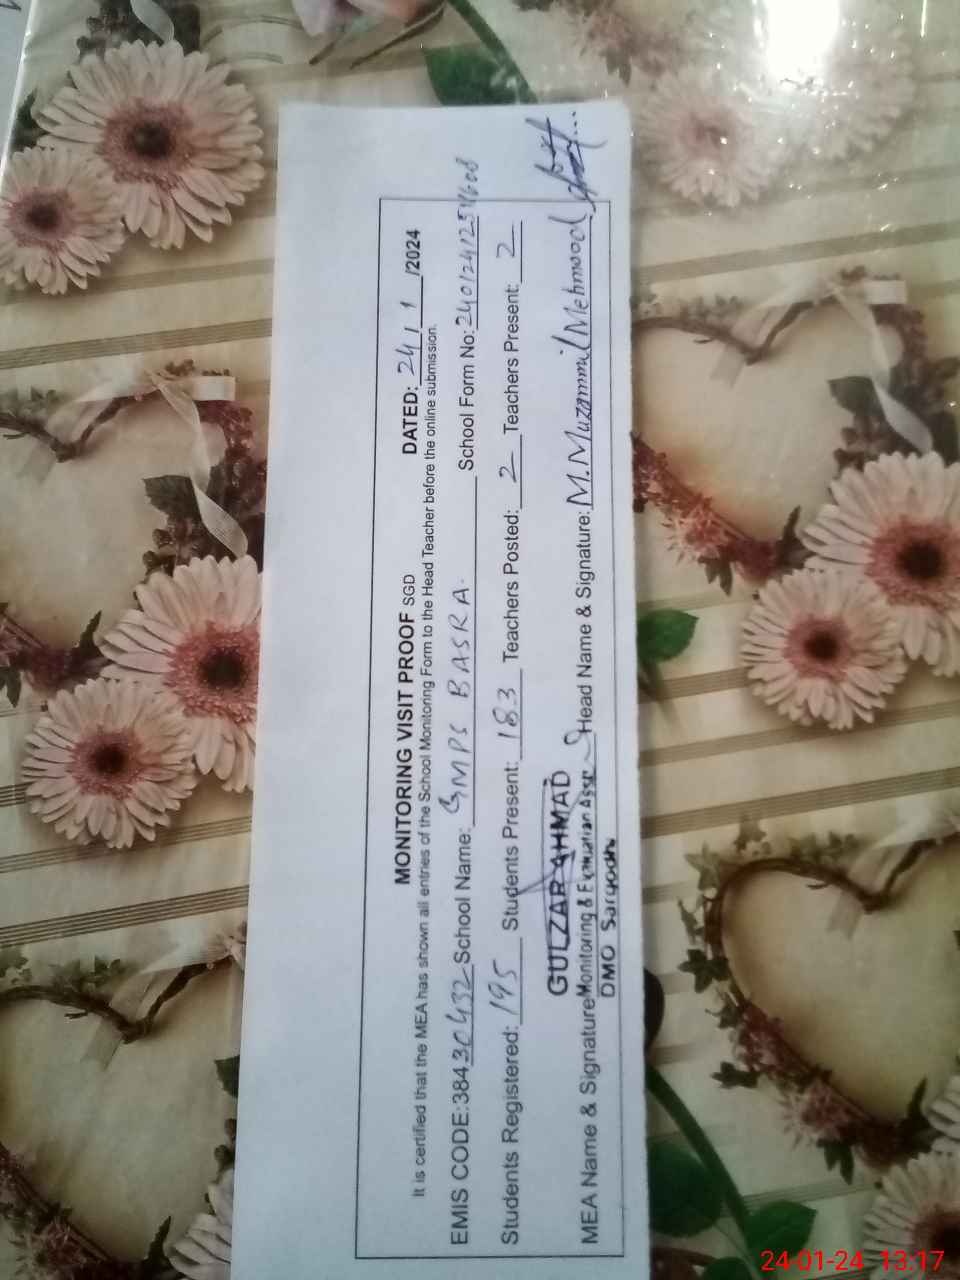 MONITORING VISIT PROOF SGD DATED: 24/1/2024
It is certified that the MEA has shown all entries of the School Monitoring Form to the Head Teacher before the online submission.
EMIS CODE:38430432 School Name: GMPS BASRA. School Form No:
Students Registered: 195 Students Present: 183 Teachers Posted: 2 Teachers Present: 2
GULZAR AHMAD
MEA Name & Signature Monitoring & Evaluation Asst Head Name & Signature: M.Muzammil Mehmood
DMO Sargodha
24-01-24 13:17